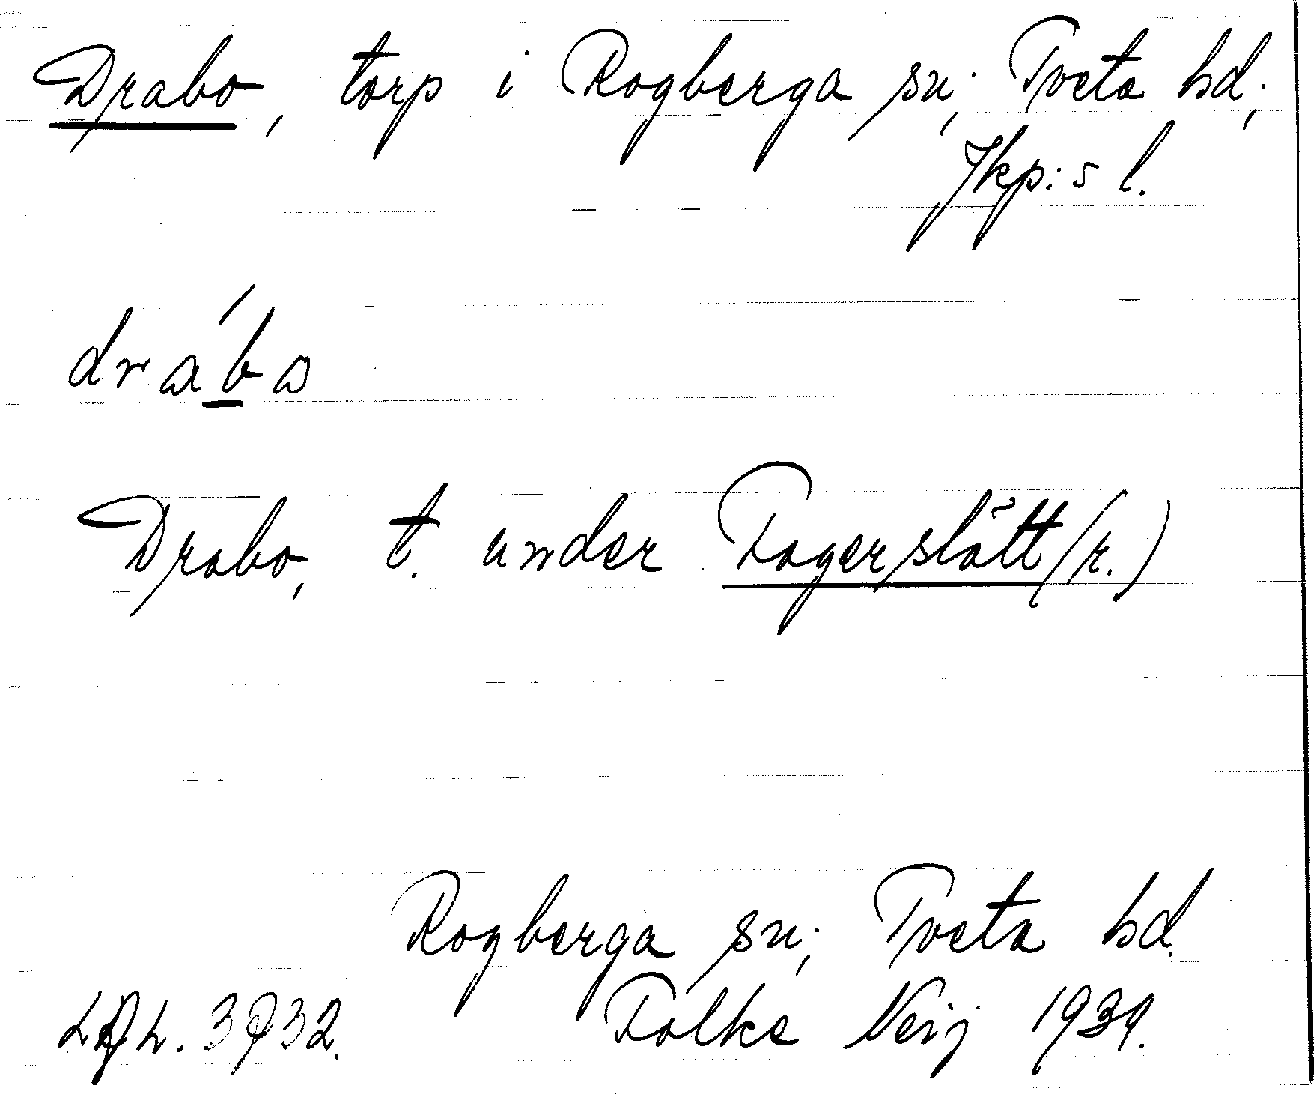 Drabo, torp i Rogberga sn; Tveta hd;
Jkp:s l.
dra´bo
Drabo, t. under Fagerslätt (r.)
Rogberga sn; Tveta hd.
3932. Folke Neij 1939.